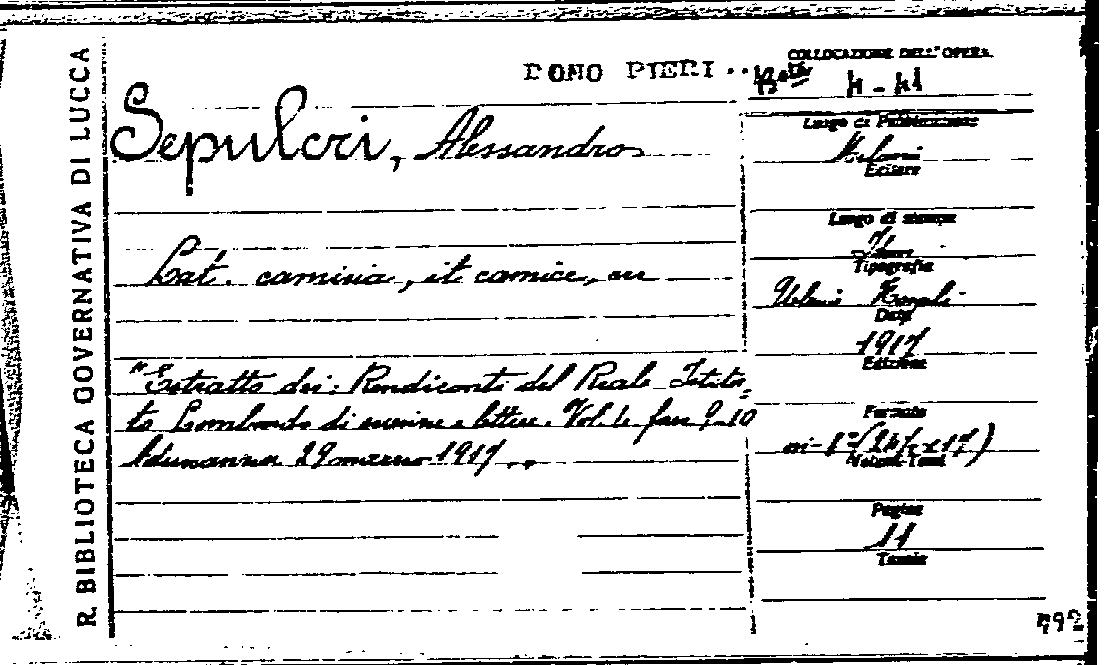 R. BIBLIOTECA GOVERNATIVA DI LUCCA
DONO PIERI
COLLOCAZIONE DELL'OPERA
Sepulcri, Alessandro
Lat. camisia, it camice, ecc
"Estratto dei: Rendiconti del Reale Istitu-
to Lombardo di scienze e lettere. Vol. L fasc 9-10
Adunanza 29 marzo 1917
Luogo di Pubblicazione
Milano
Editore
Luogo di stampa
Tipografia
Ulrico Hoepli
Data
1917
Edizione
Formato
in-8° (24½x17)
Volumi-Tomi
Pagine
11
Tavole